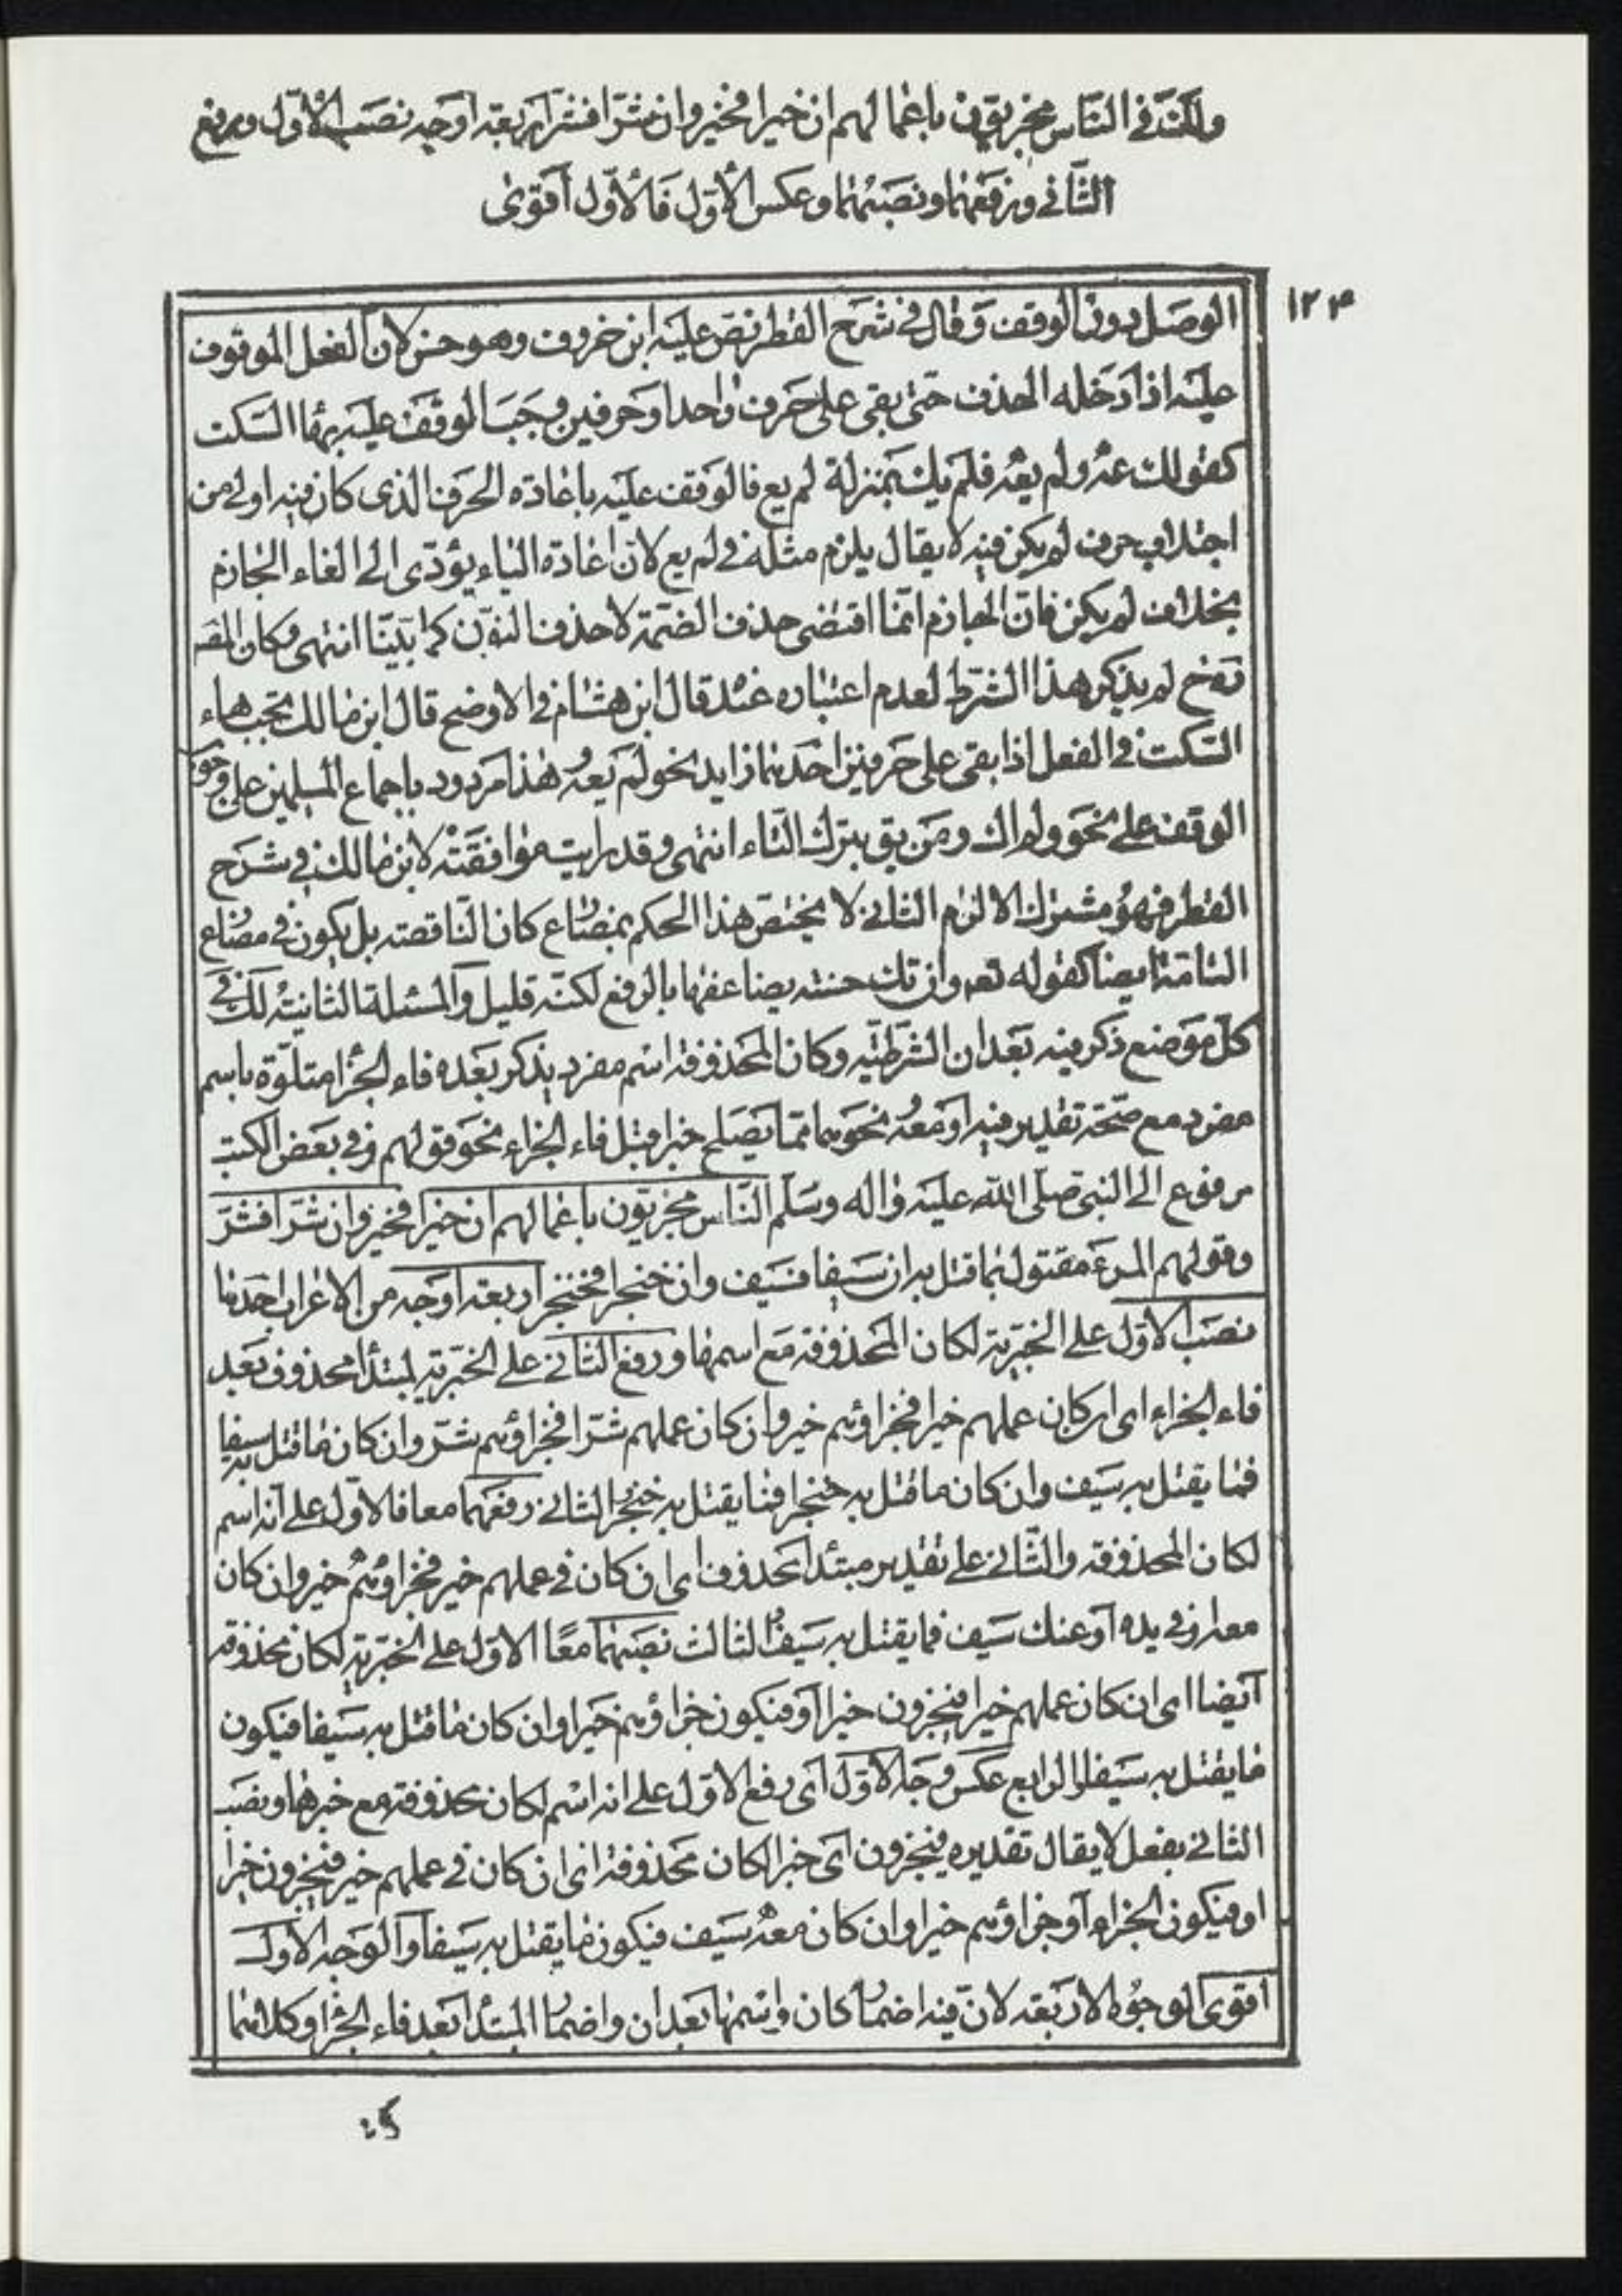 ولك فى الناس مجزيّون باعمالهم ان خيرا فخير وان شرّا فشرّ اربعة اوجه نصب الاوّل ورفع
الثّانى ورفعهما ونصبهما وعكس الاوّل فالاوّل أقوى
١٢٣
الوصل دون الوقف وقال فى شرح القطر نصّ عليه ابن خروف وهو حسن لان الفعل الموقوف
عليه اذا دخله الحذف حتى بقى على حرف واحد او حرفين وجب الوقف عليه بهاء السكت
كقولك عه ولم يعه فلم يك بمنزلة لم يع فالوقف عليه باعادة الحرف الذى كان فيه اولى من
اجتلاب حرف لم يكن فيه لا يقال يلزم مثله فى لم يع لان اعادة الياء يؤدّى الى الغاء الجازم
بخلاف لم يكن فان الجازم انما اقتضى حذف الضمّة لا حذف النون كما بيّنا انتهى وكان المصـ
لم يذكر هذا الشرط لعدم اعتباره عنده قال ابن هشام فى الاوضح قال ابن مالك تجب هاء
السّكت فى الفعل اذا بقى على حرفين احدهما زايد نحو لم يعه وهذا مردود باجماع المسلمين على وجوب
الوقف على نحو ولم اك ومن تق بترك الهاء انتهى وقد رايت موافقته لابن مالك فى شرح
القطر فهو مشترك الالزام الثانى لا يختصّ هذا الحكم بمضارع كان النّاقصة بل يكون فى مضارع
التامّة ايضا كقوله تعه وان تك حسنة يضاعفها بالرفع لكنّه قليل والمسئلة الثانية لك فى
كلّ موضع ذكر فيه بعد ان الشرطيّة وكان المحذوفة اسم مفرد يذكر بعده فاء الجزا متلوّة باسم
مفرد مع صحّة تقدير فيه او معه نحوهما ممّا يصلح خبرا قبل فاء الجزاء نحو قولهم وفى بعض الكتب
مرفوع الى النبى صلى الله عليه واله وسلّم الناس مجزيّون باعمالهم ان خيرا فخير وان شرّا فشرّ
وقولهم المرء مقتول بما قتل به ان سيفا فسيف وان خنجرا فخنجر اربعة اوجه من الاعراب احدها
نصب الاوّل على الخبريّة لكان المحذوفة مع اسمها ورفع الثانى على الخبريّة لمبتدأ محذوف بعد
فاء الجزاء اى ان كان عملهم خيرا فجزاؤهم خير وان كان عملهم شرّا فجزاؤهم شرّ وان كان ما قتل به سيفا
فما يقتل به سيف وان كان ما قتل به خنجرا فما يقتل به خنجر الثانى رفعهما معا فالاول على انه اسم
لكان المحذوفة والثّانى على تقدير مبتدأ محذوف اى ان كان فى عملهم خير فجزاؤهم خير وان كان
معه او فى يده او عنده سيف فما يقتل به سيف الثالث نصبهما معًا الاول على الخبريّة لكان محذوفة
أيضا اى ان كان عملهم خيرا فيجزون خيرا أو فيكون جزاؤهم خيرا وان كان ما قتل به سيفا فيكون
ما يقتل به سيفا الرابع عكس وجه الاوّل أى رفع الاوّل على انه اسم لكان محذوفة مع خبرها ونصب
الثانى بفعل لا يقال تقديره فيجزون أى خبرا لكان محذوفة اى ان كان فى عملهم خير فيجزون خيرا
او فيكون الجزاء أو جزاؤهم خيرا وان كان معه سيف فيكون ما يقتل به سيفا والوجه الأول
أقوى الوجوه الاربعة لانّ فيه اضمار كان واسمها بعد ان واضمار المبتدأ بعد فاء الجزا وكلاهما